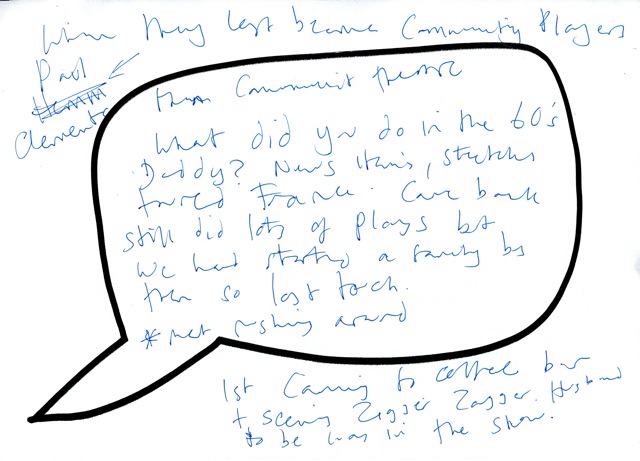 When they left became Community Players
Paul
Clements
than Communit theatre
What did you do in the 60's
Daddy? News items, sketches
toured France. Came back
still did lots of plays but
we had started a family by
then so lost touch.
* met rushing around
1st Coming to coffee bar
+ seeing Zigger Zagger. Husband
to be was in the show.